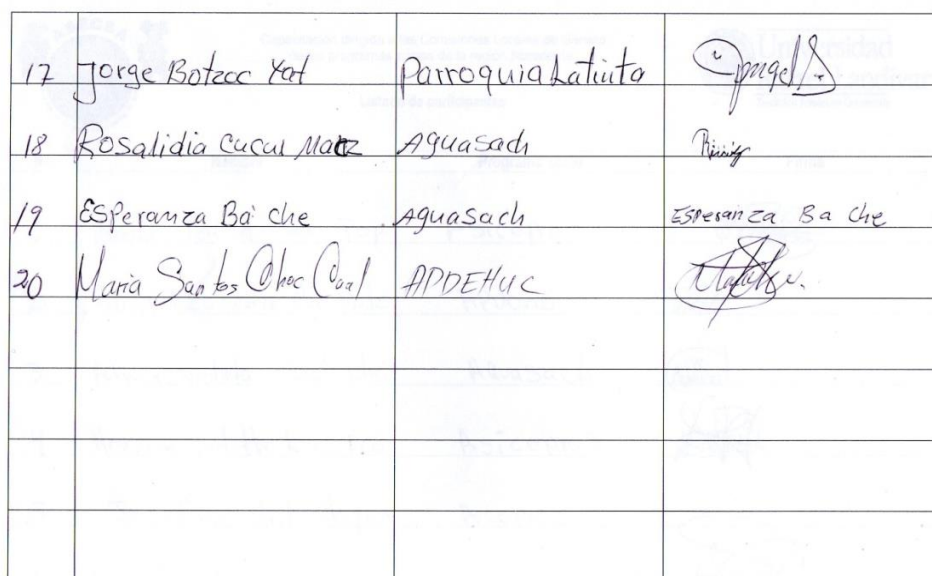 17 Jorge Botzoc Yat Parroquia Latinta
18 Rosalidia Cucul Maaz Aguasach
19 Esperanza Ba che Aguasach Esperanza Ba Che
20 Maria Santos Choc Caal APDEHUC